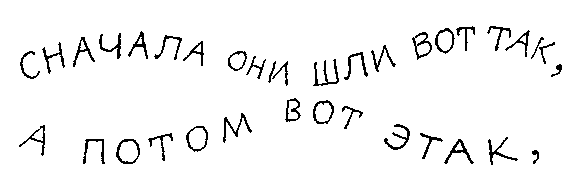 СНАЧАЛА ОНИ ШЛИ ВОТ ТАК,
А ПОТОМ ВОТ ЭТАК,